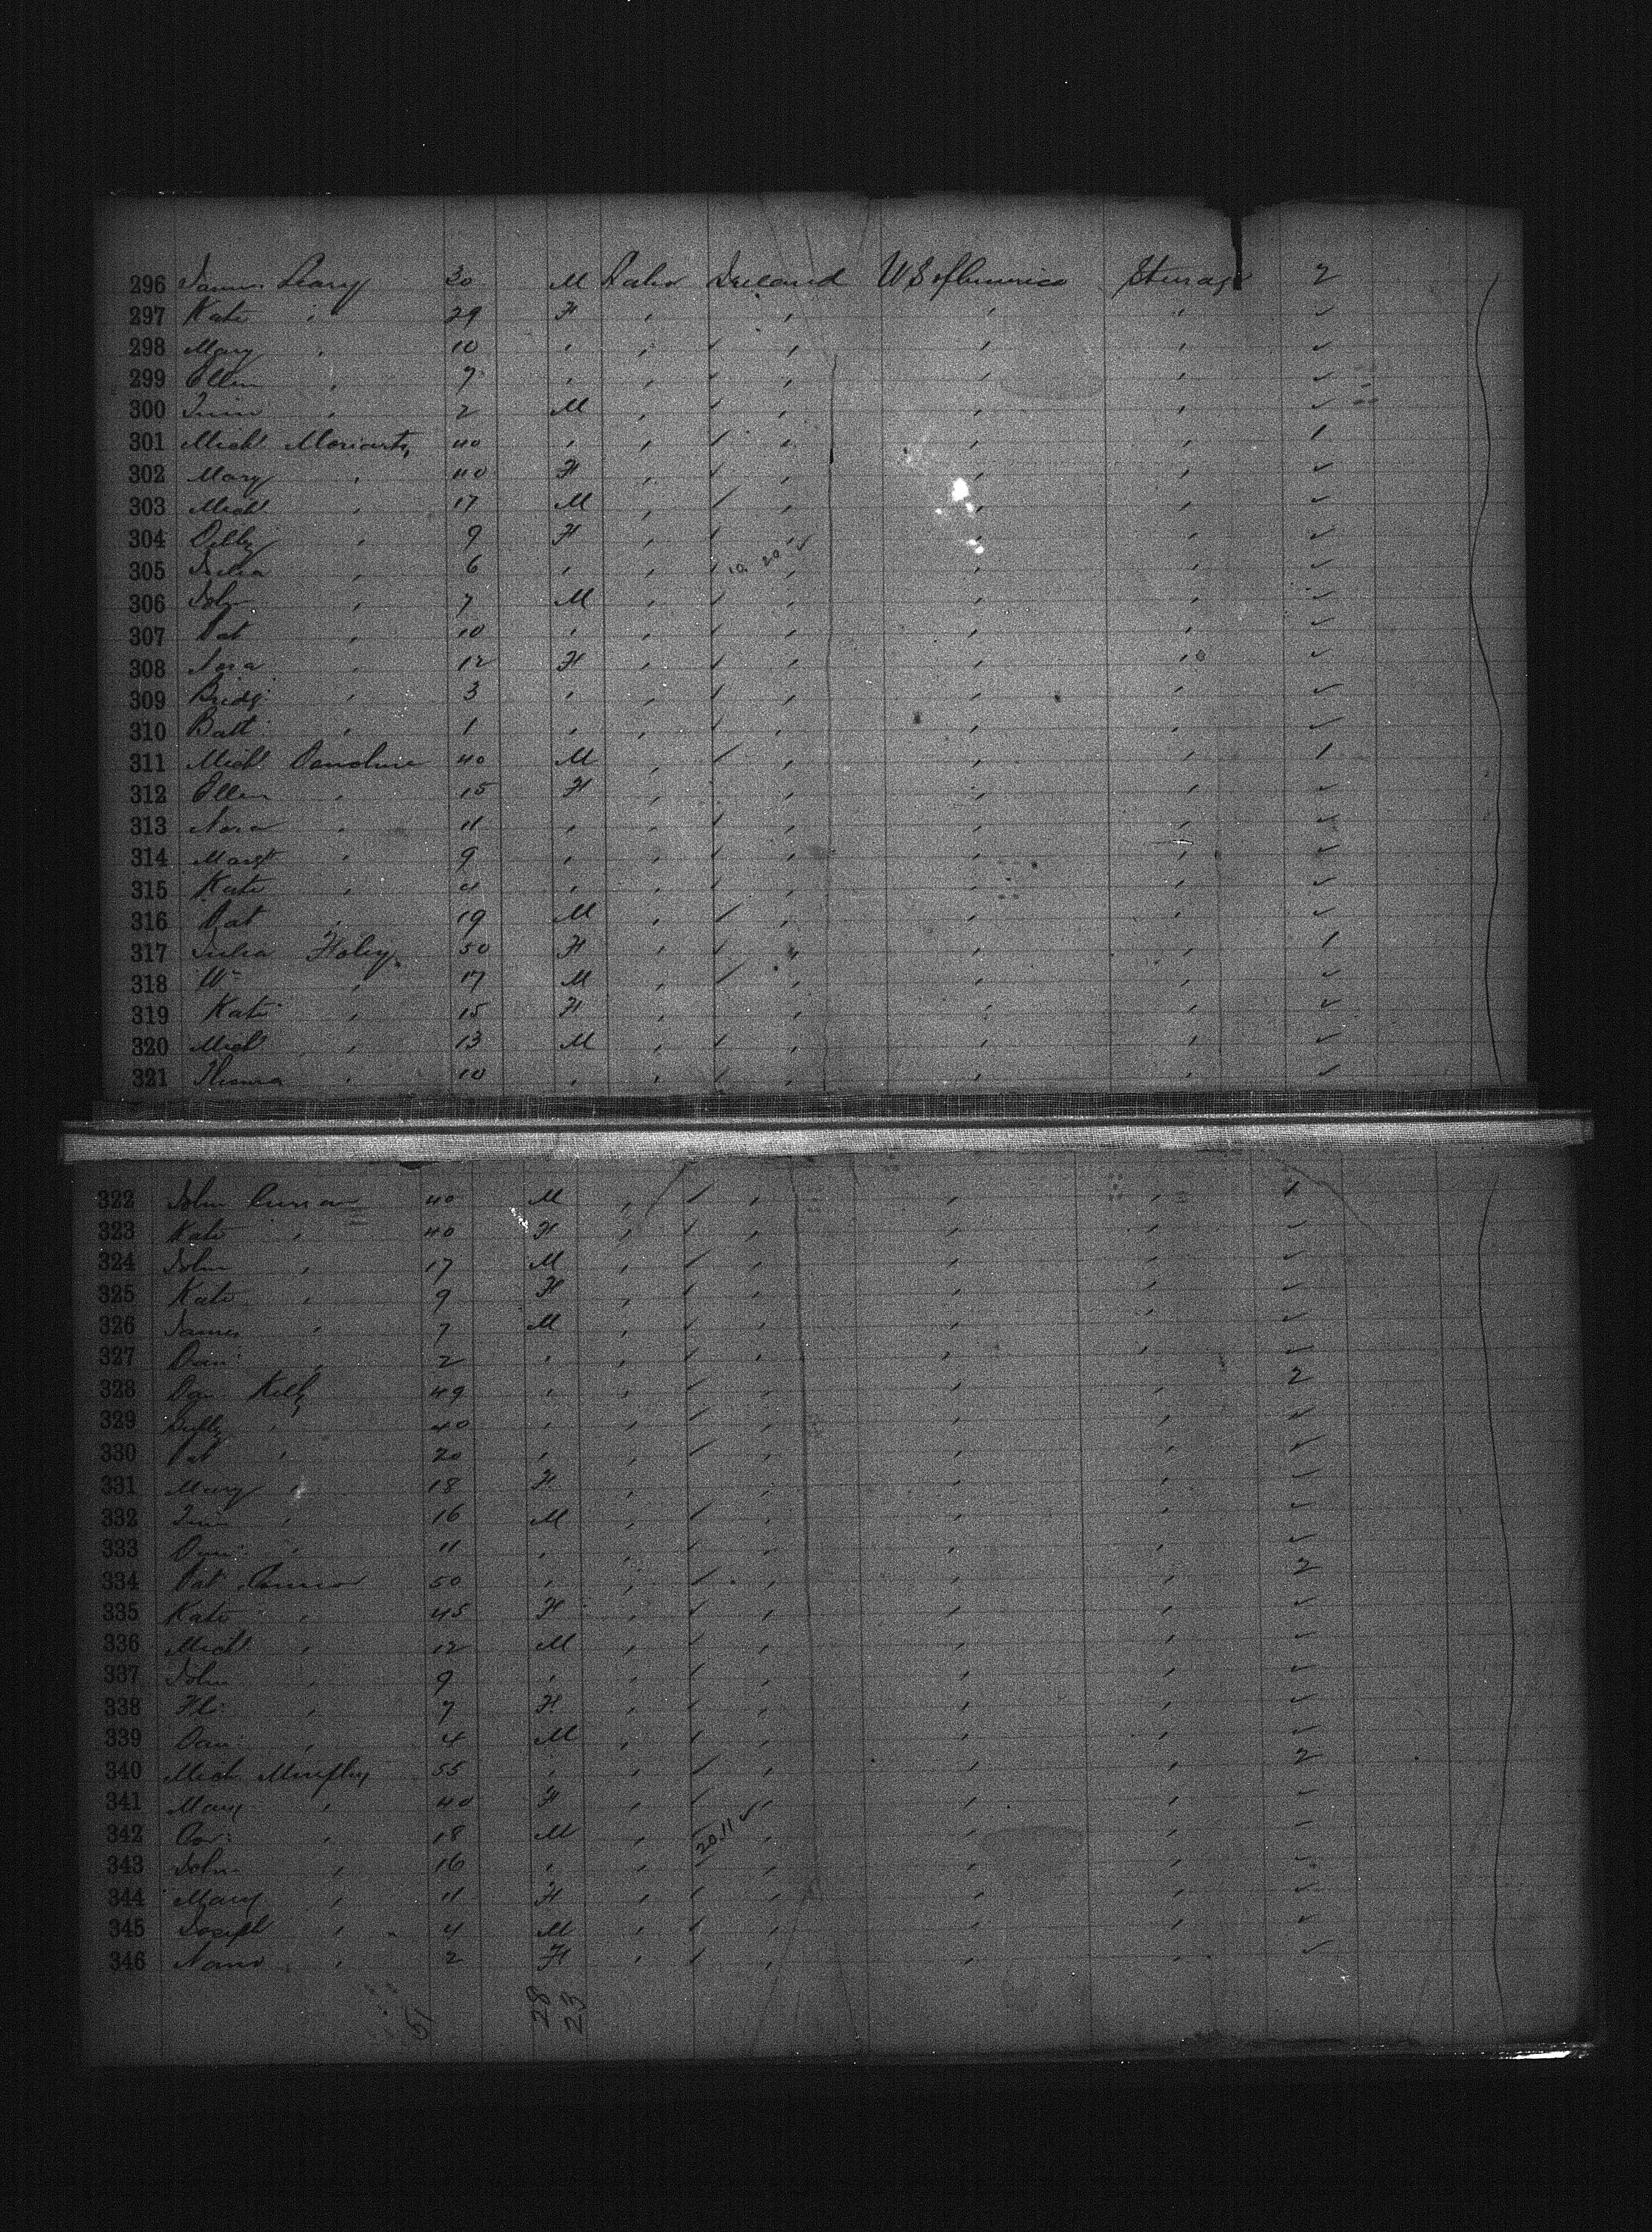 296 James Leary 30 M Labr Ireland U S of America Steerage 2
297 Kate " 29 F " " " " ✓
298 Mary " 10 " " ✓ " " " ✓
299 Ellen " 7 " " ✓ " " " ✓
300 " 2 M " ✓ " " " ✓
301 Michl Moriarty 40 " " ✓ " " " 1
302 Mary " 40 F " ✓ " " " ✓
303 Michl " 17 M " ✓ " " " ✓
304 " 9 F " ✓ " " " ✓
305 Julia " 6 " " ✓ 10 20 ✓ " " " ✓
306 John " 7 M " ✓ " " " ✓
307 Pat " 10 " " ✓ " " " ✓
308 Nora " 12 F " ✓ " " " ✓
309 Bridg " 3 " " ✓ " " " ✓
310 Batt " 1 " " ✓ " " " ✓
311 Michl Donohue 40 M " ✓ " " " 1
312 Ellen " 15 F " " " " ✓
313 Nora " 11 " " ✓ " " " ✓
314 Margt " 9 " " ✓ " " " ✓
315 Kate " 4 " " ✓ " " " ✓
316 Pat " 19 M " ✓ " " " ✓
317 Julia Foley 50 F " ✓ " " " 1
318 Wm " 17 M " ✓ " " " ✓
319 Kate " 15 F " " " " ✓
320 Michl " 13 M " ✓ " " " ✓
321 " 10 " " ✓ " " " ✓
322 John Curran 40 M " ✓ " " " 1
323 Kate " 40 F " ✓ " " " ✓
324 John " 17 M " ✓ " " " ✓
325 Kate " 9 F " ✓ " " " ✓
326 James " 7 M " ✓ " " " ✓
327 Dan " 2 " " ✓ " " " ✓
328 Dan Kelly 49 " " ✓ " " " 2
329 " 40 " " ✓ " " " ✓
330 Pat " 20 " " ✓ " " " ✓
331 Mary " 18 F " " " " ✓
332 " 16 M " ✓ " " " ✓
333 Dan " 11 " " ✓ " " " ✓
334 Pat Connor 50 " " ✓ " " " 2
335 Kate " 45 F " ✓ " " " ✓
336 Michl " 12 M " ✓ " " " ✓
337 John " 9 " " ✓ " " " ✓
338 " 7 F " ✓ " " " ✓
339 Dan " 4 M " ✓ " " " ✓
340 Mich Murphy 55 " " ✓ " " " 2
341 Mary " 40 F " ✓ " " " ✓
342 Cor: " 18 M " 20.11 ✓ " " " ✓
343 John " 16 " " ✓ " " " ✓
344 Mary " 11 F " ✓ " " " ✓
345 Joseph " 4 M " ✓ " " " ✓
346 " 2 F " ✓ " " " ✓
51 28
23